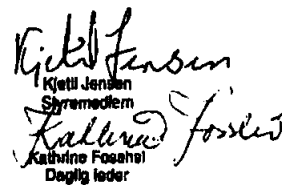 Kjetil Jensen
Kjetil Jensen
Styremedlem
Kathrine
Kathrine
Daglig leder